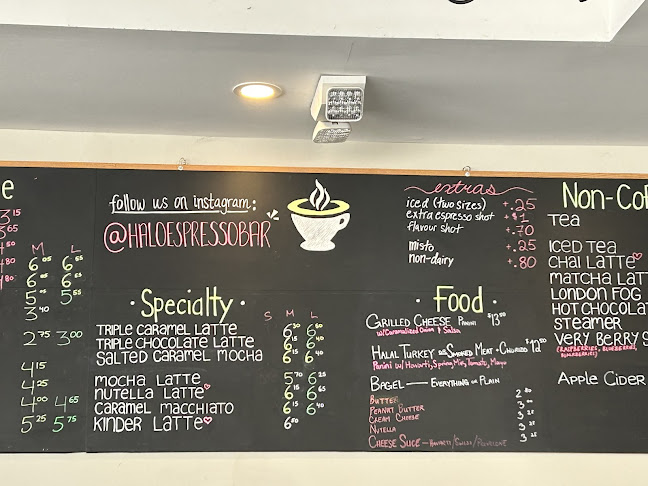 e
3.15
3.65
M L
6.05 6.65
6.05 6.55
5.05 5.55
3.40
2.75 3.00
4.15
4.25
4.00 4.65
5.25 5.75
follow us on instagram:
@HALOESPRESSOBAR
· Specialty ·
S M L
TRIPLE CARAMEL LATTE 6.30 6.60
TRIPLE CHOCOLATE LATTE 6.15 6.40
SALTED CARAMEL MOCHA 6.15 6.40
MOCHA LATTE 5.70 6.25
NUTELLA LATTE 6.15 6.65
CARAMEL MACCHIATO 6.15 6.40
KINDER LATTE
extras
iced (two sizes) +.25
extra espresso shot +$1
flavour shot +.70
misto +.25
non-dairy +.80
· Food ·
GRILLED CHEESE PANINI $13.50
w/Caramelized Onion & Salsa
HALAL TURKEY
Panini w/ Havarti, Spring Mix, Tomato, Mayo
BAGEL — EVERYTHING OR PLAIN
BUTTER
PEANUT BUTTER
CREAM CHEESE
NUTELLA
CHEESE SLICE — HAVARTI/SWISS/PROVOLONE
Non-Cof
TEA
ICED TEA
CHAI LATTE
MATCHA LATT
LONDON FOG
HOT CHOCOLAT
STEAMER
VERY BERRY S
(RASPBERRIES, BLUEBERRIES,
BLACKBERRIES)
APPLE CIDER